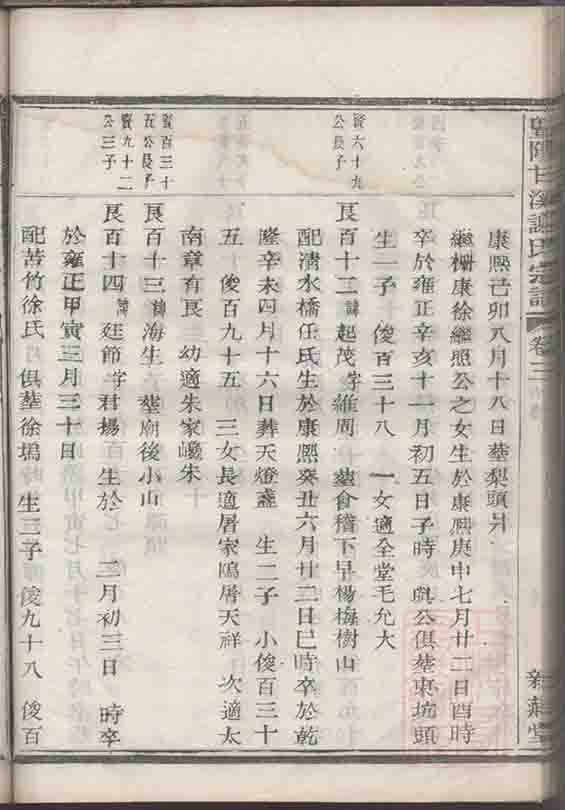 暨陽甘溪謝氏宗譜 卷三
康熙己卯八月十八日塟梨頭爿
繼柵康徐繼照公之女生於康熙庚申七月廿二日酉時
卒於雍正辛亥十一月初五日子時與公俱塟東坑頭
生一子 俊百三十八 一女適全堂毛允大
賢六十九
公長子
良百十二諱起茂字維周 塟會稽下旱楊梅樹山
配清水橋任氏生於康熙癸丑六月廿二日巳時卒於乾
隆辛未四月十六日葬天燈盞 生二子 小俊百三十
五 俊百九十五 三女長適屠家鴻屠天祥 次適太
南章有良 幼適朱家巉朱
賢百三十
五公長子
良百十三諱海生 塟廟後小山
賢九十二
公三子
良百十四諱廷節字君揚 生於 三月初三日 時卒
於雍正甲寅三月三十日
配苦竹徐氏 俱塟徐塢 生三子 俊九十八 俊百